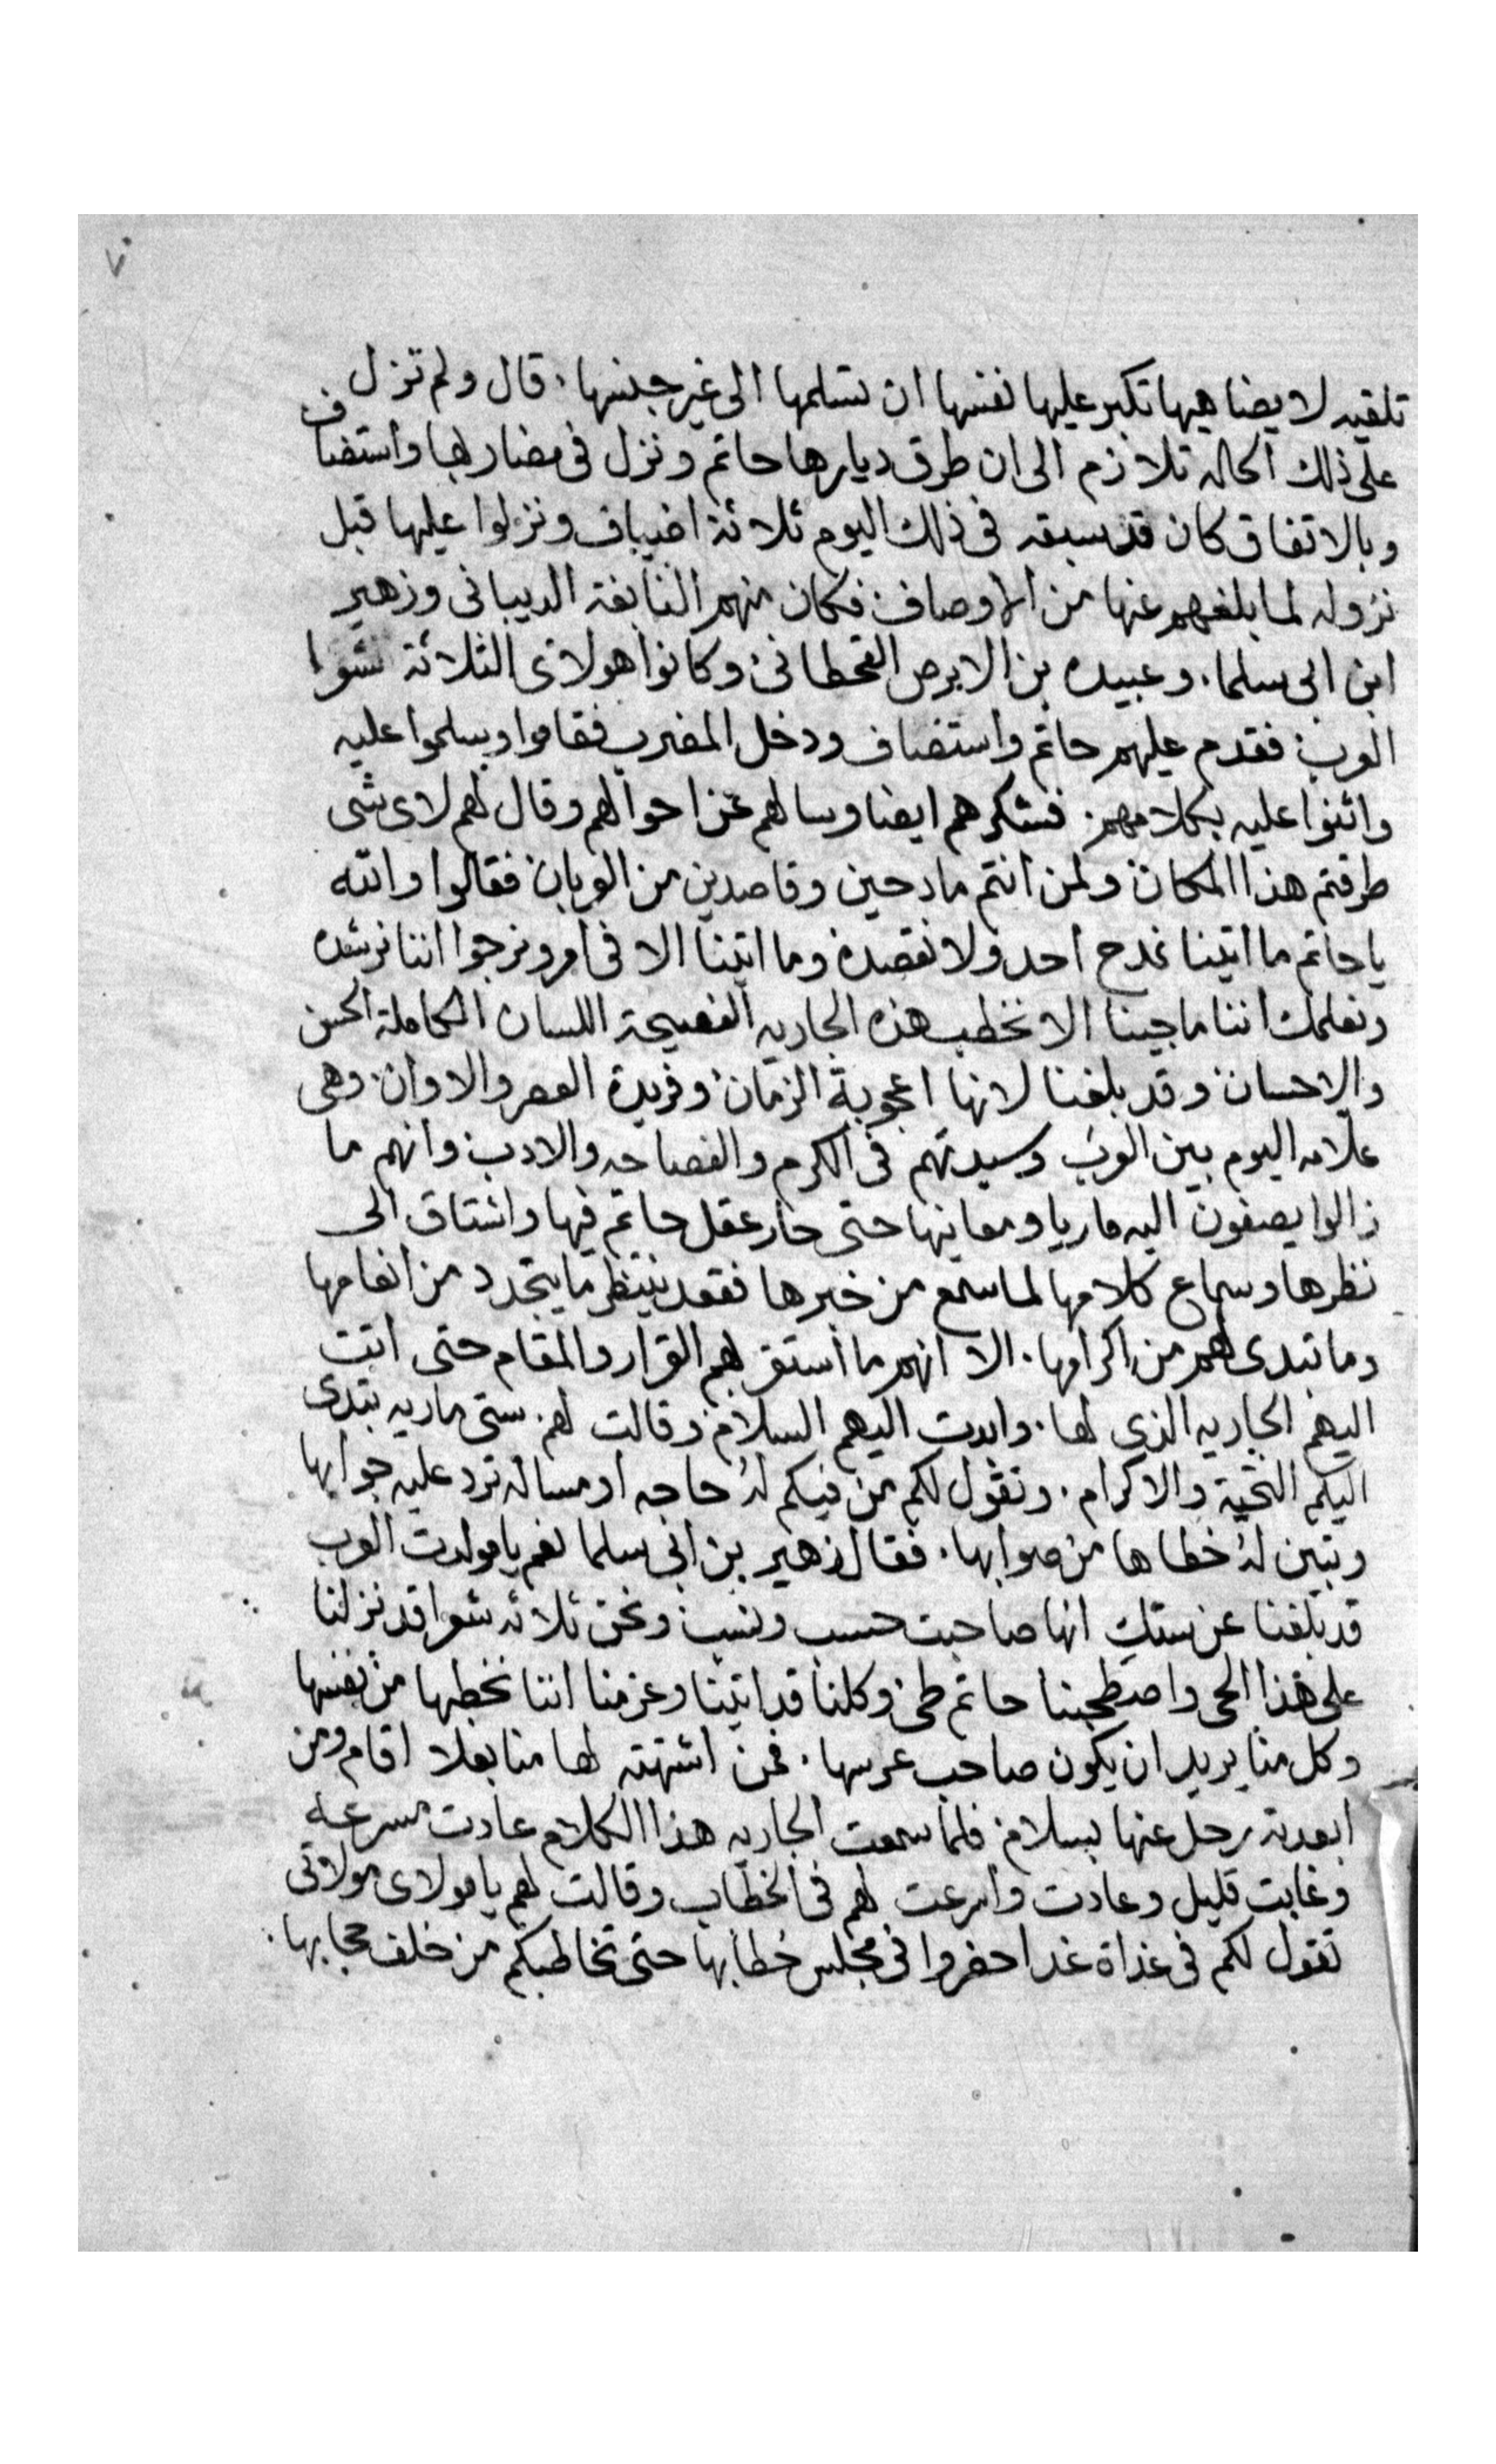 ٧
تلقيه لا يضاهيها تكبر عليها نفسها ان تسلمها الى غير جنسها. قال ولم تزل
على ذلك الحاله تلازم الى ان طرق ديارها حاتم ونزل فى مضاربها واستضاف
وبالاتفاق كان قد سبقه فى ذلك اليوم ثلاثة اضياف ونزلوا عليها قبل
نزوله لما بلغهم عنها من الاوصاف فكان منهم النابغة الديبانى وزهير
ابن ابى سلما. وعبيده بن الابرص القحطانى وكانوا هولاى الثلاثة شعرا
العرب فقدم عليهم حاتم واستضاف ودخل المضرب فقاموا وسلموا عليه
واثنوا عليه بكلامهم. فشكرهم ايضا وسالهم عن احوالهم وقال لهم لاى شى
طرقتم هذا المكان ولمن انتم مادحين وقاصدين من العربان فقالوا والله
يا حاتم ما اتينا نمدح احد ولا نقصده وما اتينا الا فى امر ونرجوا اننا نرشده
ونعلمك اننا ما جينا الا نخطب هذه الجاريه الفصيحة اللسان الكاملة الحسن
والاحسان وقد بلغنا لانها اعجوبة الزمان وفريدة العصر والاوان وهى
علامه اليوم بين العرب وسيدتهم فى الكرم والفصاحه والادب وانهم ما
زالوا يصفون اليه ماريا ومعانيها حتى حار عقل حاتم فيها واشتاق الى
نظرها وسماع كلامها لما سمع من خبرها فقعد ينتظر ما يتجدد من انعامها
وما تبدى لهم من اكرامها. الا انهم ما استقر بهم القرار والمقام حتى اتت
اليهم الجاريه الذى لها. وابدت اليهم السلام وقالت لهم ستى ماريه تبدى
اليكم التحية والاكرام. وتقول لكم من فيكم له حاجه او مساله ترد عليه جوابها
وتبين له خطاها من صوابها. فقال زهير بن ابى سلما نعم يا مولدت العرب
قد بلغنا عن ستك انها صاحبت حسب ونسب ونحن ثلاثه شعرا قد نزلنا
على هذا الحى واصطحبنا حاتم طى وكلنا قد اتينا وعزمنا اننا نخطبها من نفسها
وكل منا يريد ان يكون صاحب عرسها. فمن اشتهته لها منا بعلا اقام ومن
ابعدته رحل عنها بسلام فلما سمعت الجاريه هذا الكلام عادت مسرعه
وغابت قليل وعادت واسرعت لهم فى الخطاب وقالت لهم يا مولاى مولاتى
تقول لكم فى غداة غد احضروا فى مجلس خطابها حتى تخاطبكم من خلف حجابها